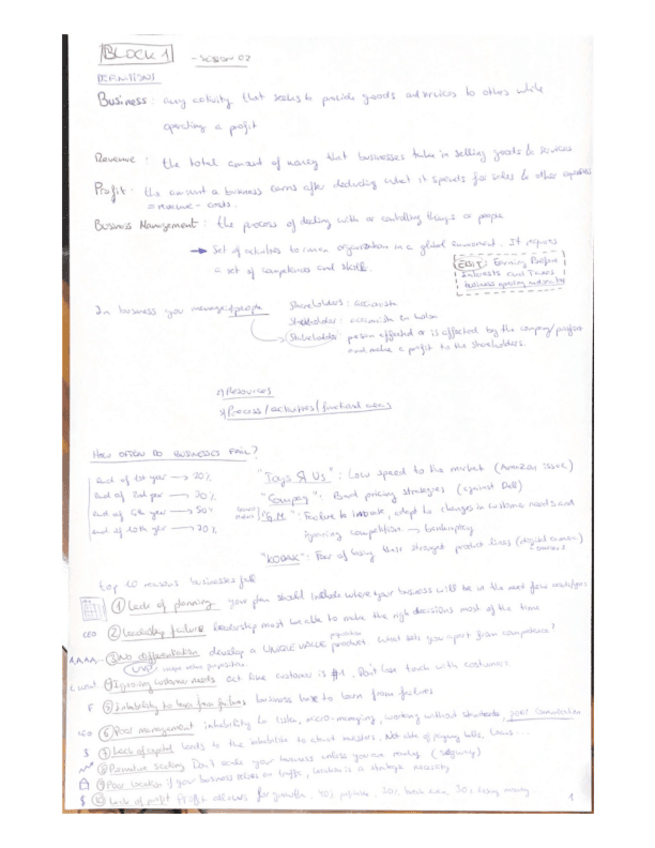 BLOCK 1 - SESSION 02
DEFINITIONS
Business: any activity that seeks to provide goods and services to others while
operating a profit
Revenue: the total amount of money that businesses take in selling goods & services
Profit: the amount a business earns after deducting what it spends for sales & other expenses
= revenue - costs.
Business Management: the process of dealing with or controlling things or people
→ Set of activities to run an organization in a global enviroment. It requires
a set of competences and skills.
EBIT: Earning Before
Interests and Taxes
business
In business you manage: 1) people
Shareholders: accionista
Stockholder: accionista en bolsa
Stakeholder: person affected or is affected by the company/project
and make a profit to the shareholders.
2) Resources
3) Process / activities / functional areas
HOW OFTEN DO BUSINESSES FAIL?
end of 1st year → 20%
end of 2nd year → 30%
end of 5th year → 50%
end of 10th year → 70%
"Toys Я Us": Low speed to the market (Amazon issue)
"Compaq": Bad pricing strategies (against Dell)
"G.M": Failure to innovate, adapt to changes in customer needs and
ignoring competition → bankruptcy
"KODAK": Fear of losing their strongest product lines (digital cameras)
top 10 reasons businesses fail
① Lack of planning your plan should include where your business will be in the next few
CEO ② Leadership failure leadership must be able to make the right decisions most of the time
③ No differentiation develop a UNIQUE VALUE proposition product. What sets you apart from competence?
UVP: unique value proposition
④ Ignoring customer needs act like customer is #1. Don't lose touch with customers
F ⑤ Inhability to learn from failures business have to learn from failures
CEO ⑥ Poor management inhability to listen, micro-managing, working without standards, poor communication
$ ⑦ Lack of capital leads to the inhabilities to attract investors. Not able of paying bills, loans...
⑧ Premature scaling Don't scale your business unless you are ready
⑨ Poor location if your business relies on traffic, location is a strategic necessity
$ ⑩ Lack of profit Profit allowers for growth. 40% profitable, 30% break even, 30% losing money
1